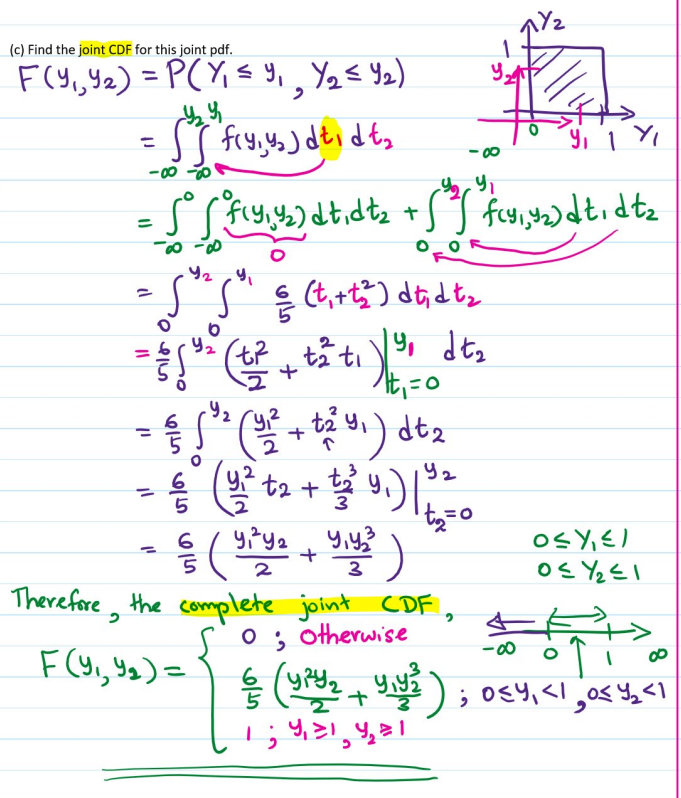 (c) Find the joint CDF for this joint pdf.
Y₂
1
y₂
0
y₁
1
Y₁
-∞
F(y₁,y₂) = P(Y₁ ≤ y₁ , Y₂ ≤ y₂)
= ∫_{-∞}^{y₂} ∫_{-∞}^{y₁} f(y₁,y₂) dt₁ dt₂
= ∫_{-∞}^{0} ∫_{-∞}^{0} f(y₁,y₂) dt₁dt₂ + ∫_{0}^{y₂} ∫_{0}^{y₁} f(y₁,y₂) dt₁ dt₂
0
= ∫_{0}^{y₂} ∫_{0}^{y₁} 6/5 (t₁+t₂²) dt₁ dt₂
= 6/5 ∫_{0}^{y₂} (t₁²/2 + t₂² t₁) |_{t₁=0}^{y₁} dt₂
= 6/5 ∫_{0}^{y₂} (y₁²/2 + t₂² y₁) dt₂
= 6/5 (y₁²/2 t₂ + t₂³/3 y₁) |_{t₂=0}^{y₂}
= 6/5 (y₁²y₂/2 + y₁y₂³/3)
0 ≤ Y₁ ≤ 1
0 ≤ Y₂ ≤ 1
Therefore, the complete joint CDF,
-∞ 0 1 ∞
F(y₁,y₂) = {
0 ; otherwise
6/5 (y₁²y₂/2 + y₁y₂³/3) ; 0≤y₁<1 , 0≤y₂<1
1 ; y₁≥1, y₂≥1